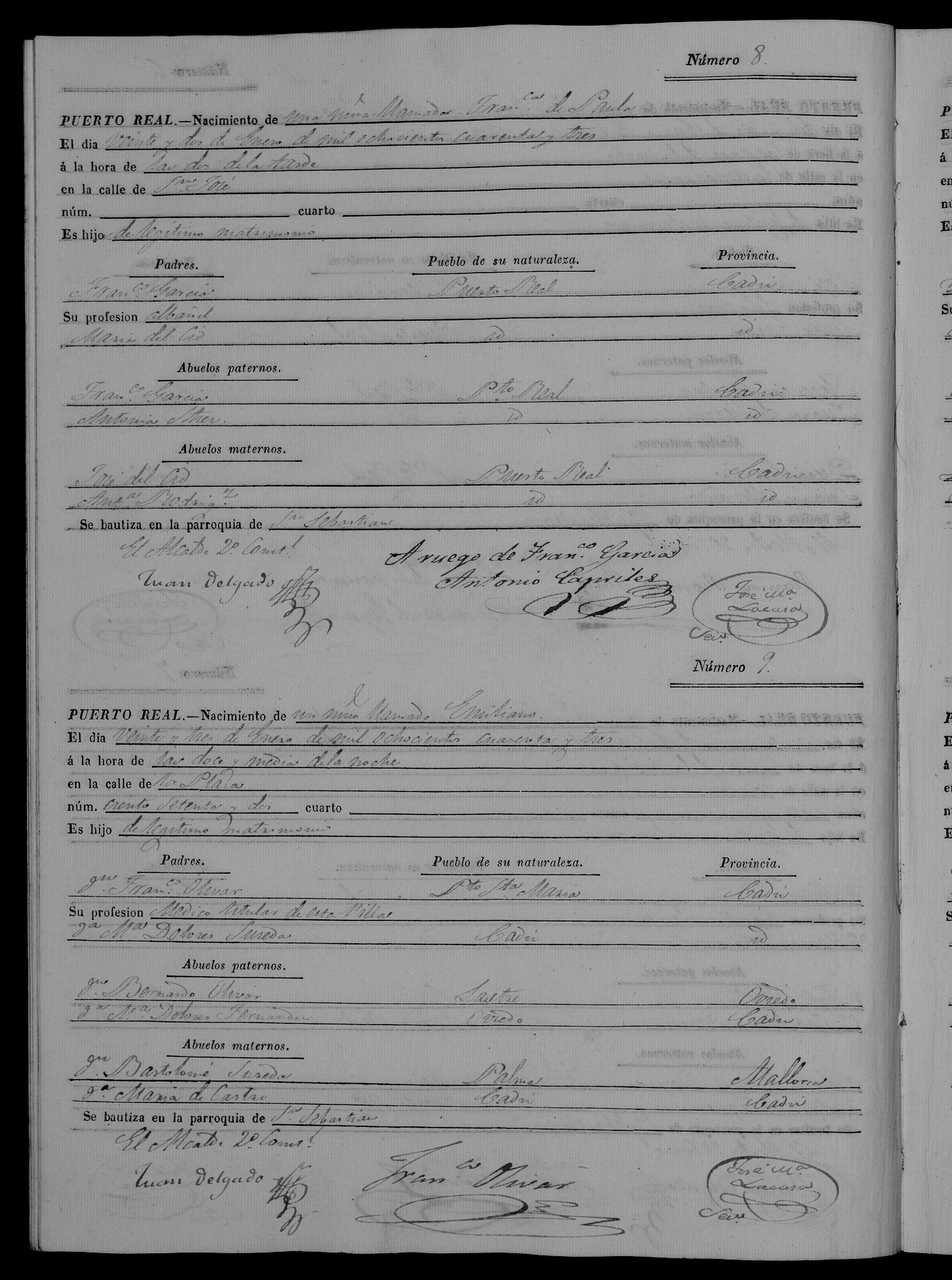 Número 8.
PUERTO REAL.—Nacimiento de una niña llamada Fran.ca de Paula
El dia Veinte y dos de Enero de mil ochocientos cuarenta y tres
á la hora de las dos de la tarde
en la calle de Sn. José
núm. cuarto
Es hijo de legitimo matrimonio
Padres. Pueblo de su naturaleza. Provincia.
Fran.co Garcia Puerto Real Cadiz
Su profesion albañil
Maria del Cid id id
Abuelos paternos.
Fran.co Garcia Pto Real Cadiz
Antonia id id
Abuelos maternos.
José del Cid Puerto Real Cadiz
Rodrig.z id id
Se bautiza en la parroquia de Sn Sebastian
El Alcalde 2º Const.l
A ruego de Fran.co Garcia
Juan Delgado
Antonio Capriles
José Mª
Lacasa
Número 9.
PUERTO REAL.—Nacimiento de un niño llamado Emiliano.
El dia Veinte y tres de Enero de mil ochocientos cuarenta y tres
á la hora de las doce y media de la noche
en la calle de la Plaza
núm. ciento setenta y dos cuarto
Es hijo de legitimo matrimonio
Padres. Pueblo de su naturaleza. Provincia.
Fran.co Olivar Pto Sta Maria Cadiz
Su profesion Medico titular de esta Villa
Mª Dolores Sureda Cadiz id
Abuelos paternos.
Bernardo Olivar Oviedo
Mª Dolores Fernandez Oviedo Cadiz
Abuelos maternos.
Bartolomé Sureda Palma Mallorca
Maria de Castro Cadiz Cadiz
Se bautiza en la parroquia de Sn Sebastian
El Alcalde 2º Const.l
Juan Delgado
Fran.co Olivar
José Mª
Lacasa